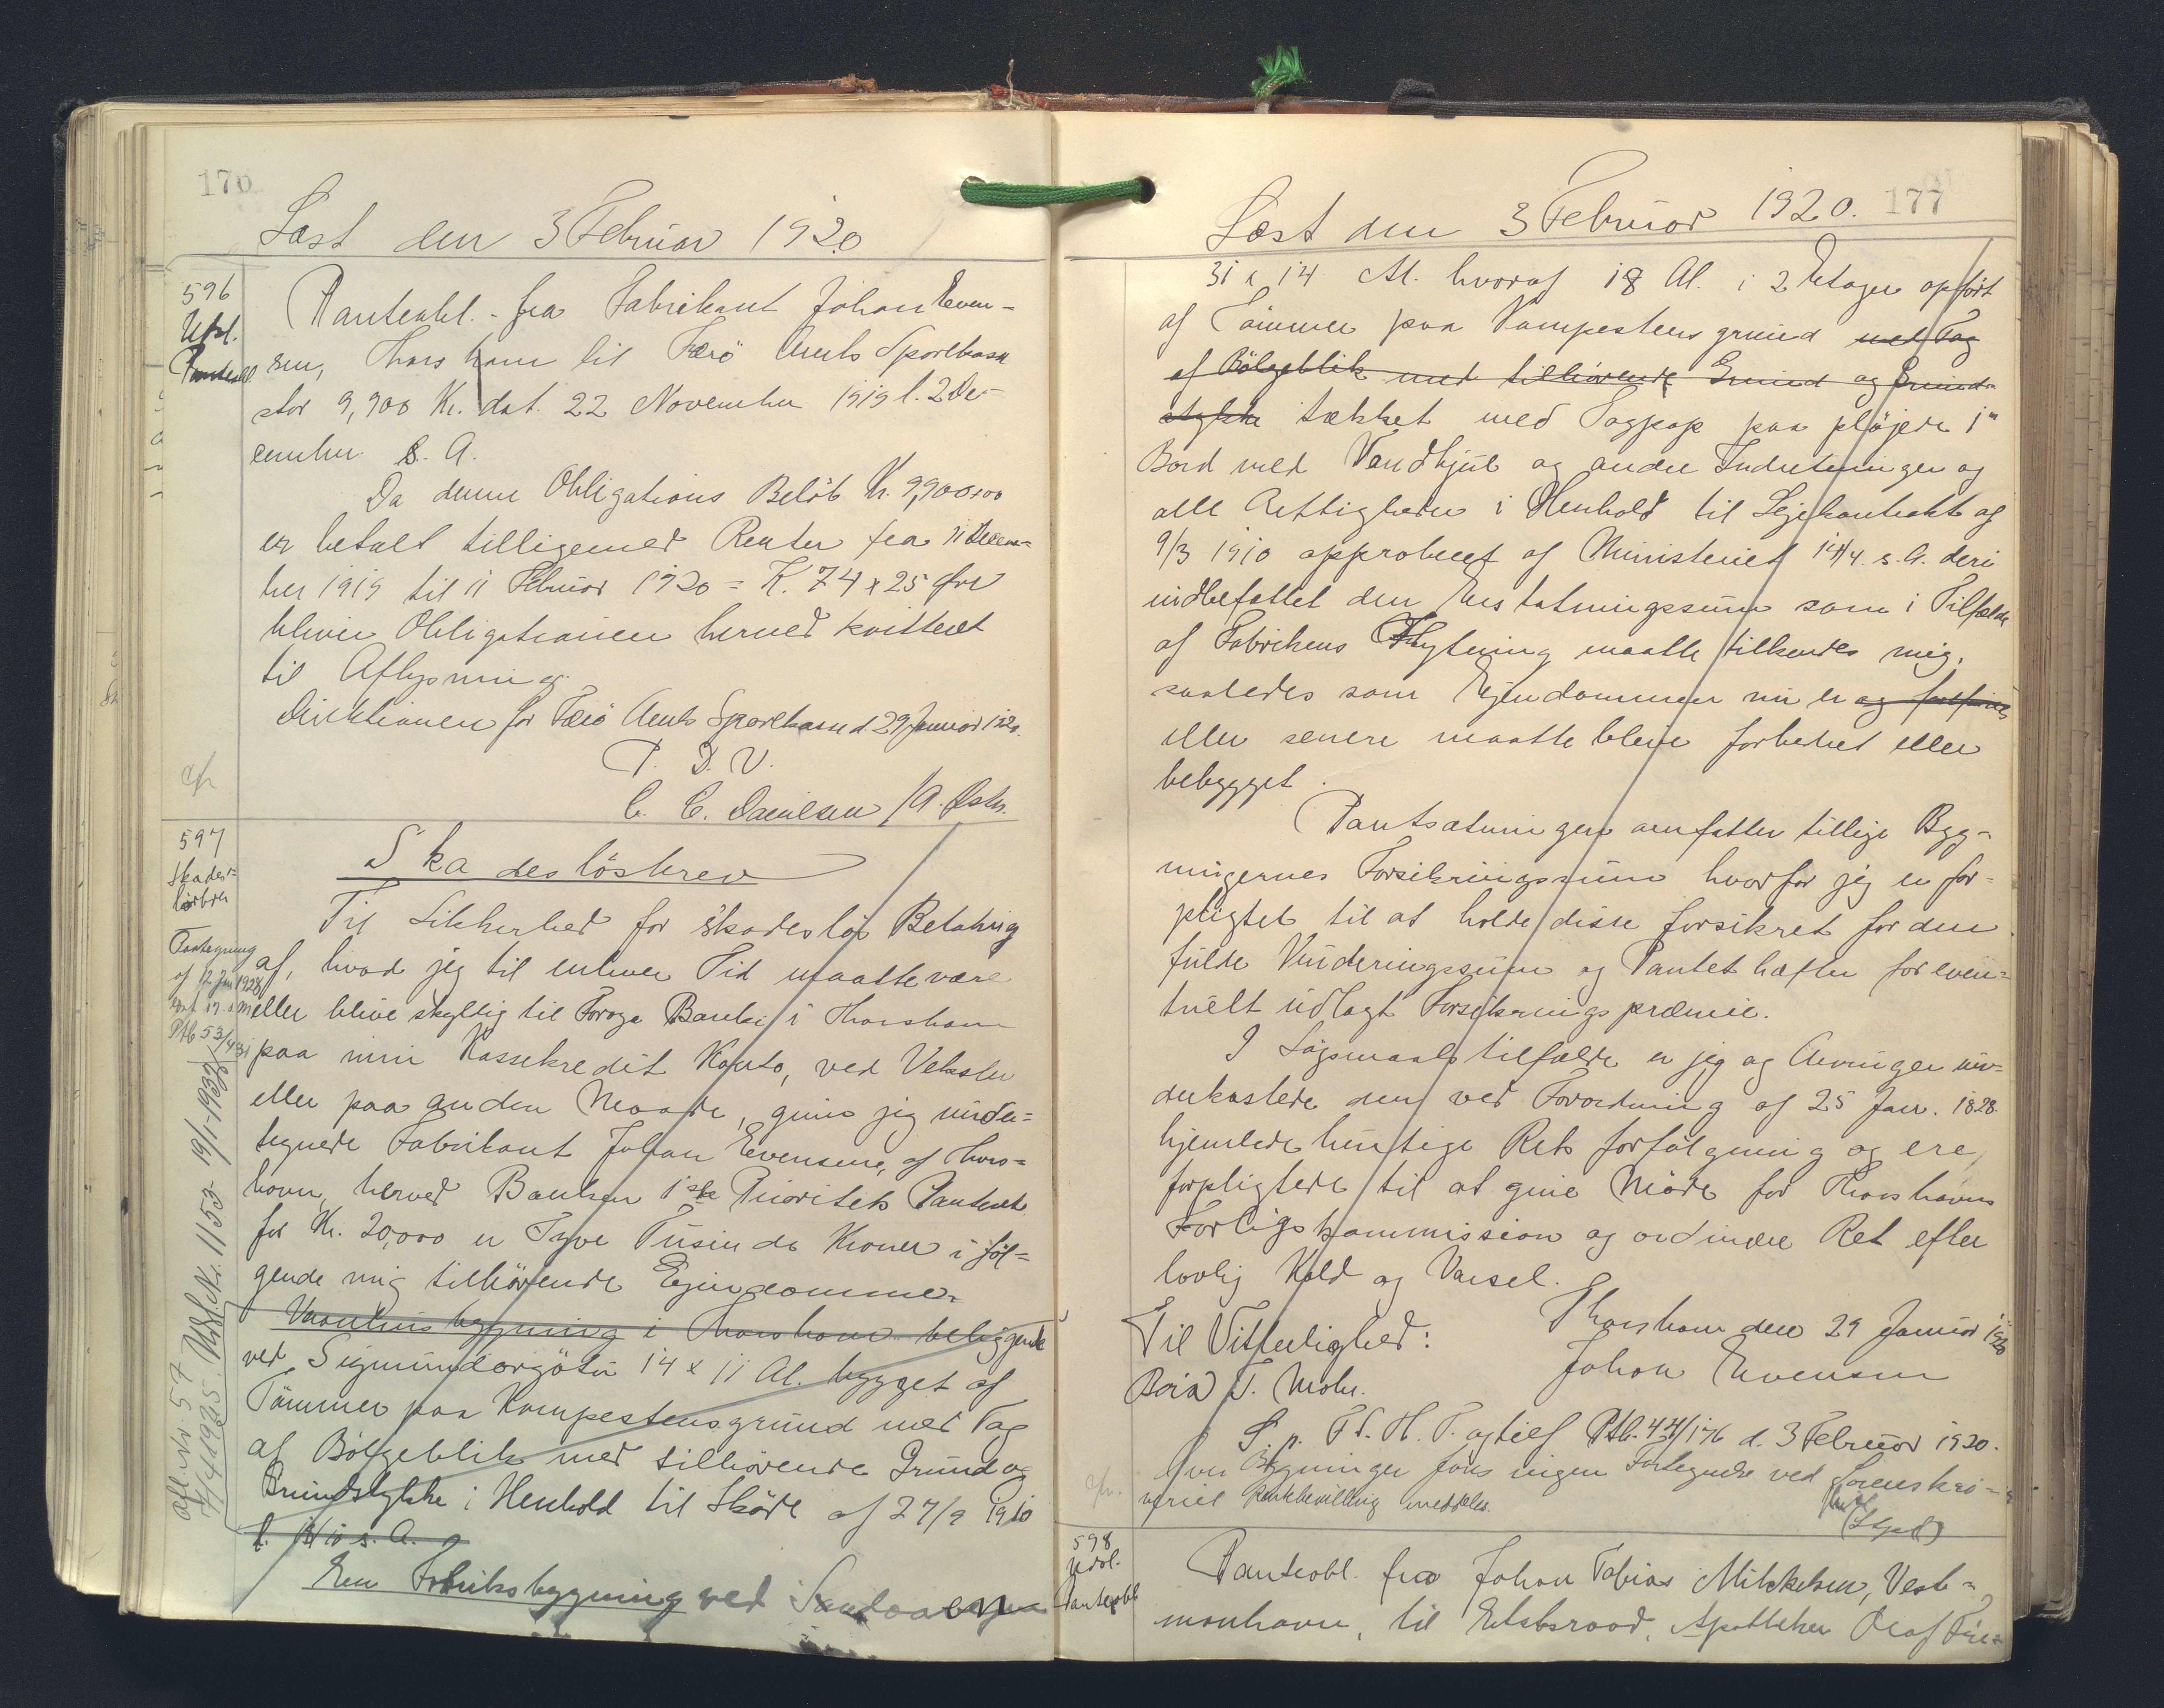 176
Læst den 3 Februar 1920
596
Udsl.
Panteobl.
Panteobl. fra Fabrikant Johan Even-
sen, Thorshavn til Færö Amts Sparekasse
stor 9,900 Kr. dat. 22 November 1919 l. 2 De-
cember s. A.
Da denne Obligations Belöb Kr. 9,900,00
er betalt tilligemed Renter fra 11 Decem-
ber 1919 til 11 Februar 1920 = K. 74 x 25 Øre
bliver Obligationen herved kvitteret
til Aflysning.
Direktionen for Færö Amts Sparekasse d. 29 Januar 1920.
P. D. V.
C. C. Danielsen /A.
597
Skades-
lösbrev
Skadeslösbrev
Til Sikkerhed for skadeslös Betaling
Paategning
af 12 Jan 1928
Ptb 53/431
af, hvad jeg til enhver Tid maatte være
eller blive skyldig til Foroya Banki i Thorshavn
paa min Kassekredit Konto, ved Veksler
eller paa anden Maade, giver jeg under-
tegnede Fabrikant Johan Evensen, af Thors-
havn, herved Banken 1ste Prioritets Panteret
for Kr. 20,000 er Tyve Tusinde Kroner i föl-
gende mig tilhörende Ejendomme.
Vaaningsbygning i Thorshavn beliggende
ved Sigmundargöta 14 x 11 Al. bygget af
Tömmer paa Kampestensgrund med Tag
af Bölgeblik med tilhörende Grund og
Grundstykke i Henhold til Sköde af 27/9 1910
l. 10 s. A.
En Fabriksbygning ved
Afl. Nr. 57 Udsl. Nr. 1153 - 19/1-1932
177
Læst den 3 Februar 1920.
31 x 14 Al. hvoraf 18 Al. i 2 Etager opfört
af Tömmer paa Kampestens grund med Tag
af Bölgeblik med tilhörende Grund og Grund-
stykke tækket med Tagpap paa plöjede 1"
Bord med Vandhjul og andre Indretninger og
alle Rettigheder i Henhold til Lejekontrakt af
9/3 1910 approberet af Ministeriet 14/4. s. A. deri
indbefattet den Erstatningssum som i Tilfælde
af Fabrikens Flytning maatte tilkendes mig,
saaledes som Ejendommen nu er
eller senere maatte blive forbedret eller
bebygget.
Pantsætningen omfatter tillige Byg-
ningernes Forsikringssum hvorfor jeg er for-
pligtet til at holde disse forsikret for den
fulde Vurderingssum og Pantet hæfter for even-
tuelt udlagt Forsikrings præmie.
I Sögsmaals tilfælde er jeg og Arvinger un-
derkastede den ved Forordning af 25 Jan. 1828
hjemlede hurtige Rets forfölgning og ere
forpligtede til at give Möde for Thorshavns
Forligskommission og ordinære Ret efter
lovlig Kald og Varsel.
Thorshavn den 29 Januar 1920
Til Vitterlighed:
Johan Evensen
T. Mohr.
Ptb. 44/176 d. 3 Februar 1920.
Over Bygninger fans ingen Fortegnelse ved Sorenskri-
veriet meddeles.
598
Udsl.
Panteobl.
Panteobl. fra Johan Tobias Mikkelsen, Vest-
manhavn, til Etatsraad, Apotheker Olaf Fin-